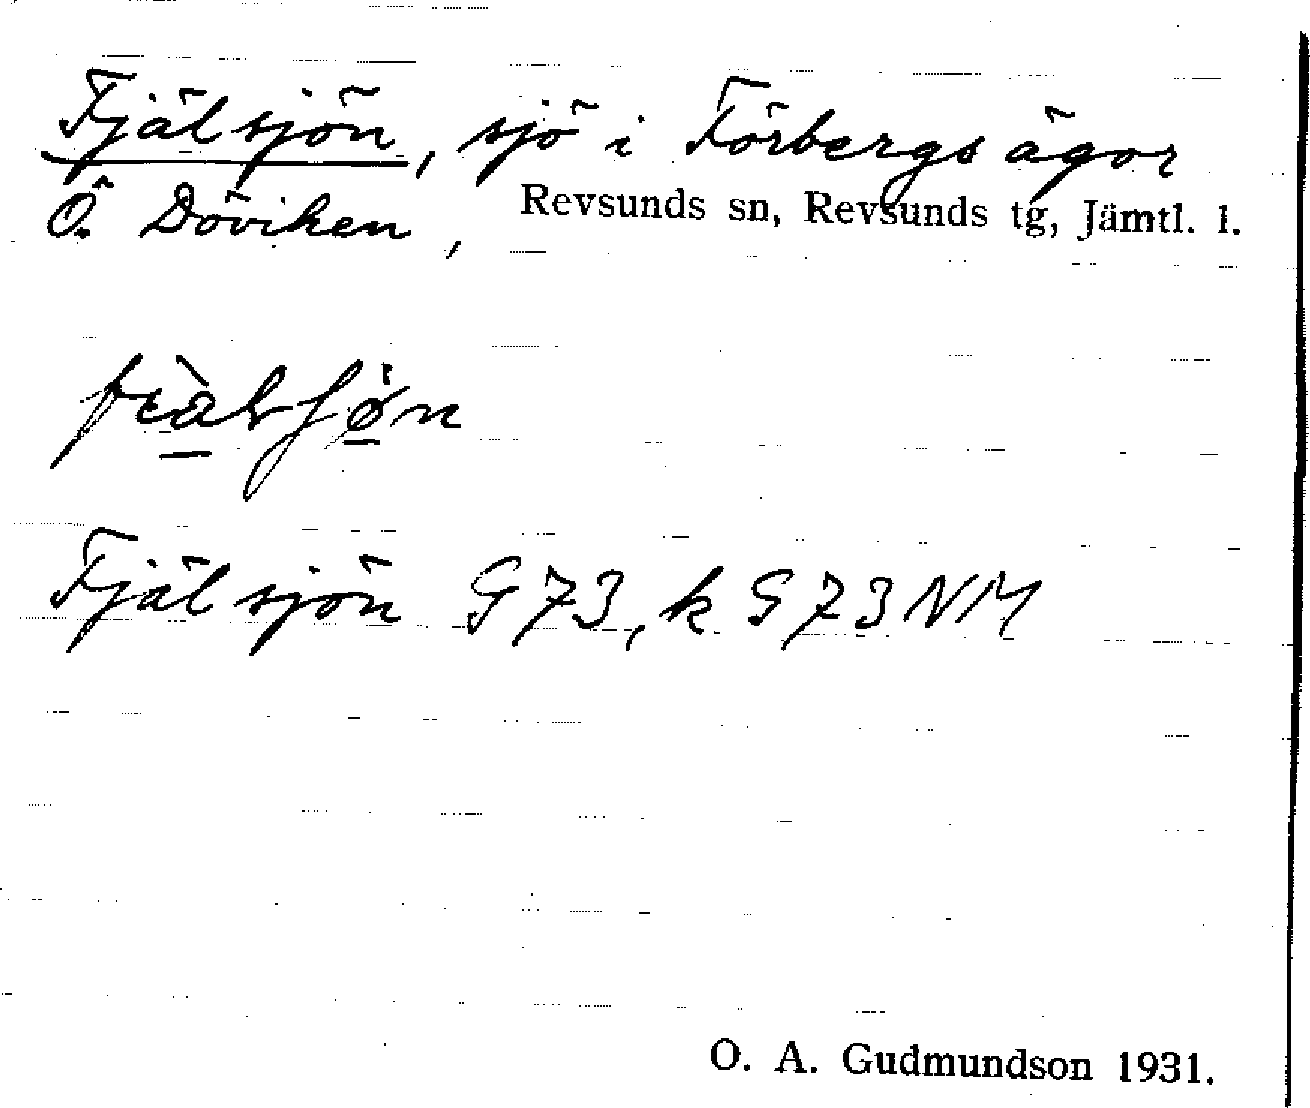 Fjälsjön, sjö i Förbergs ägor
Ö. Döviken, Revsunds sn, Revsunds tg, Jämtl. l.
Fjälsjön G 73, k G 73 NM
O. A. Gudmundson 1931.